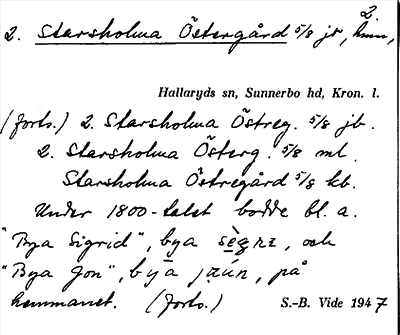 2.
2. Starsholma Östergård 5/8 jb, hmn,
Hallaryds sn, Sunnerbo hd, Kron. l.
(forts.) 2. Starsholma Östreg. 5/8 jb.
2. Starsholma Österg. 5/8 ml.
Starsholma Östregård 5/8 kb.
Under 1800-talet bodde bl. a.
"Bya Sigrid", bya och
"Bya Jon", på
hemmanet. (forts.)
S.-B. Vide 1947